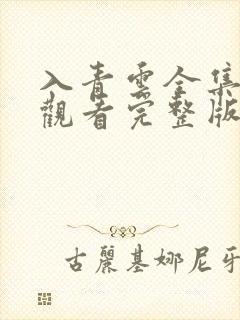 入青雲全集
觀看完整版
古麗基娜尼牙